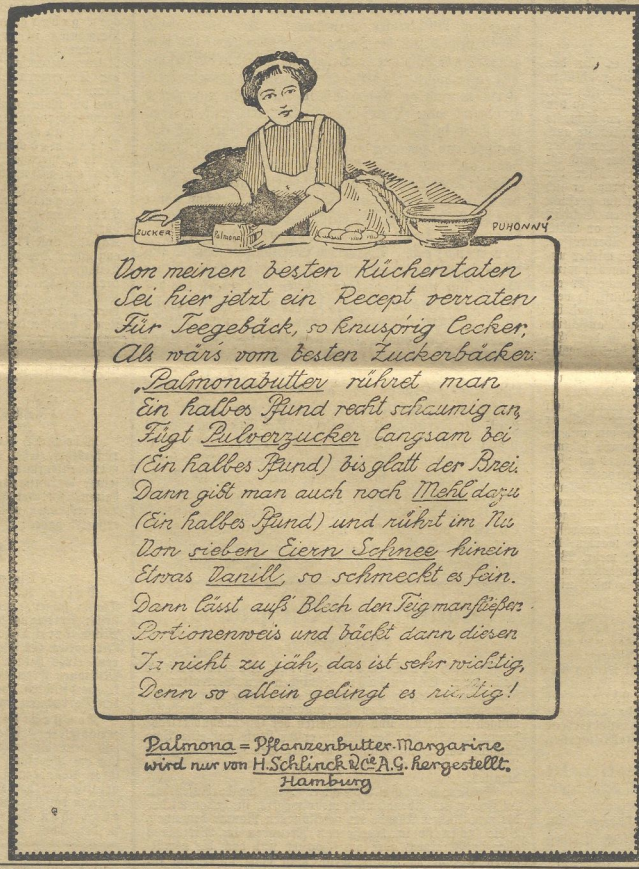 ZUCKER
Palmona
PUHONNÝ
Von meinen besten Küchentaten
Sei hier jetzt ein Recept verraten
Für Teegebäck, so knusp'rig lecker,
Als wär's vom besten Zuckerbäcker:
„Palmonabutter rühret man
Ein halbes Pfund recht schaumig an,
Fügt Pulverzucker langsam bei
(Ein halbes Pfund) bis glatt der Brei.
Dann gibt man auch noch Mehl dazu
(Ein halbes Pfund) und rührt im Nu
Von sieben Eiern Schnee hinein
Etwas Vanill, so schmeckt es fein.
Dann lässt auf's Blech den Teig man fließen
Portionenweis und bäckt dann diesen
Ja nicht zu jäh, das ist sehr wichtig,
Denn so allein gelingt es richtig!
Palmona = Pflanzenbutter-Margarine
wird nur von H. Schlinck & Cie A.G. hergestellt.
Hamburg